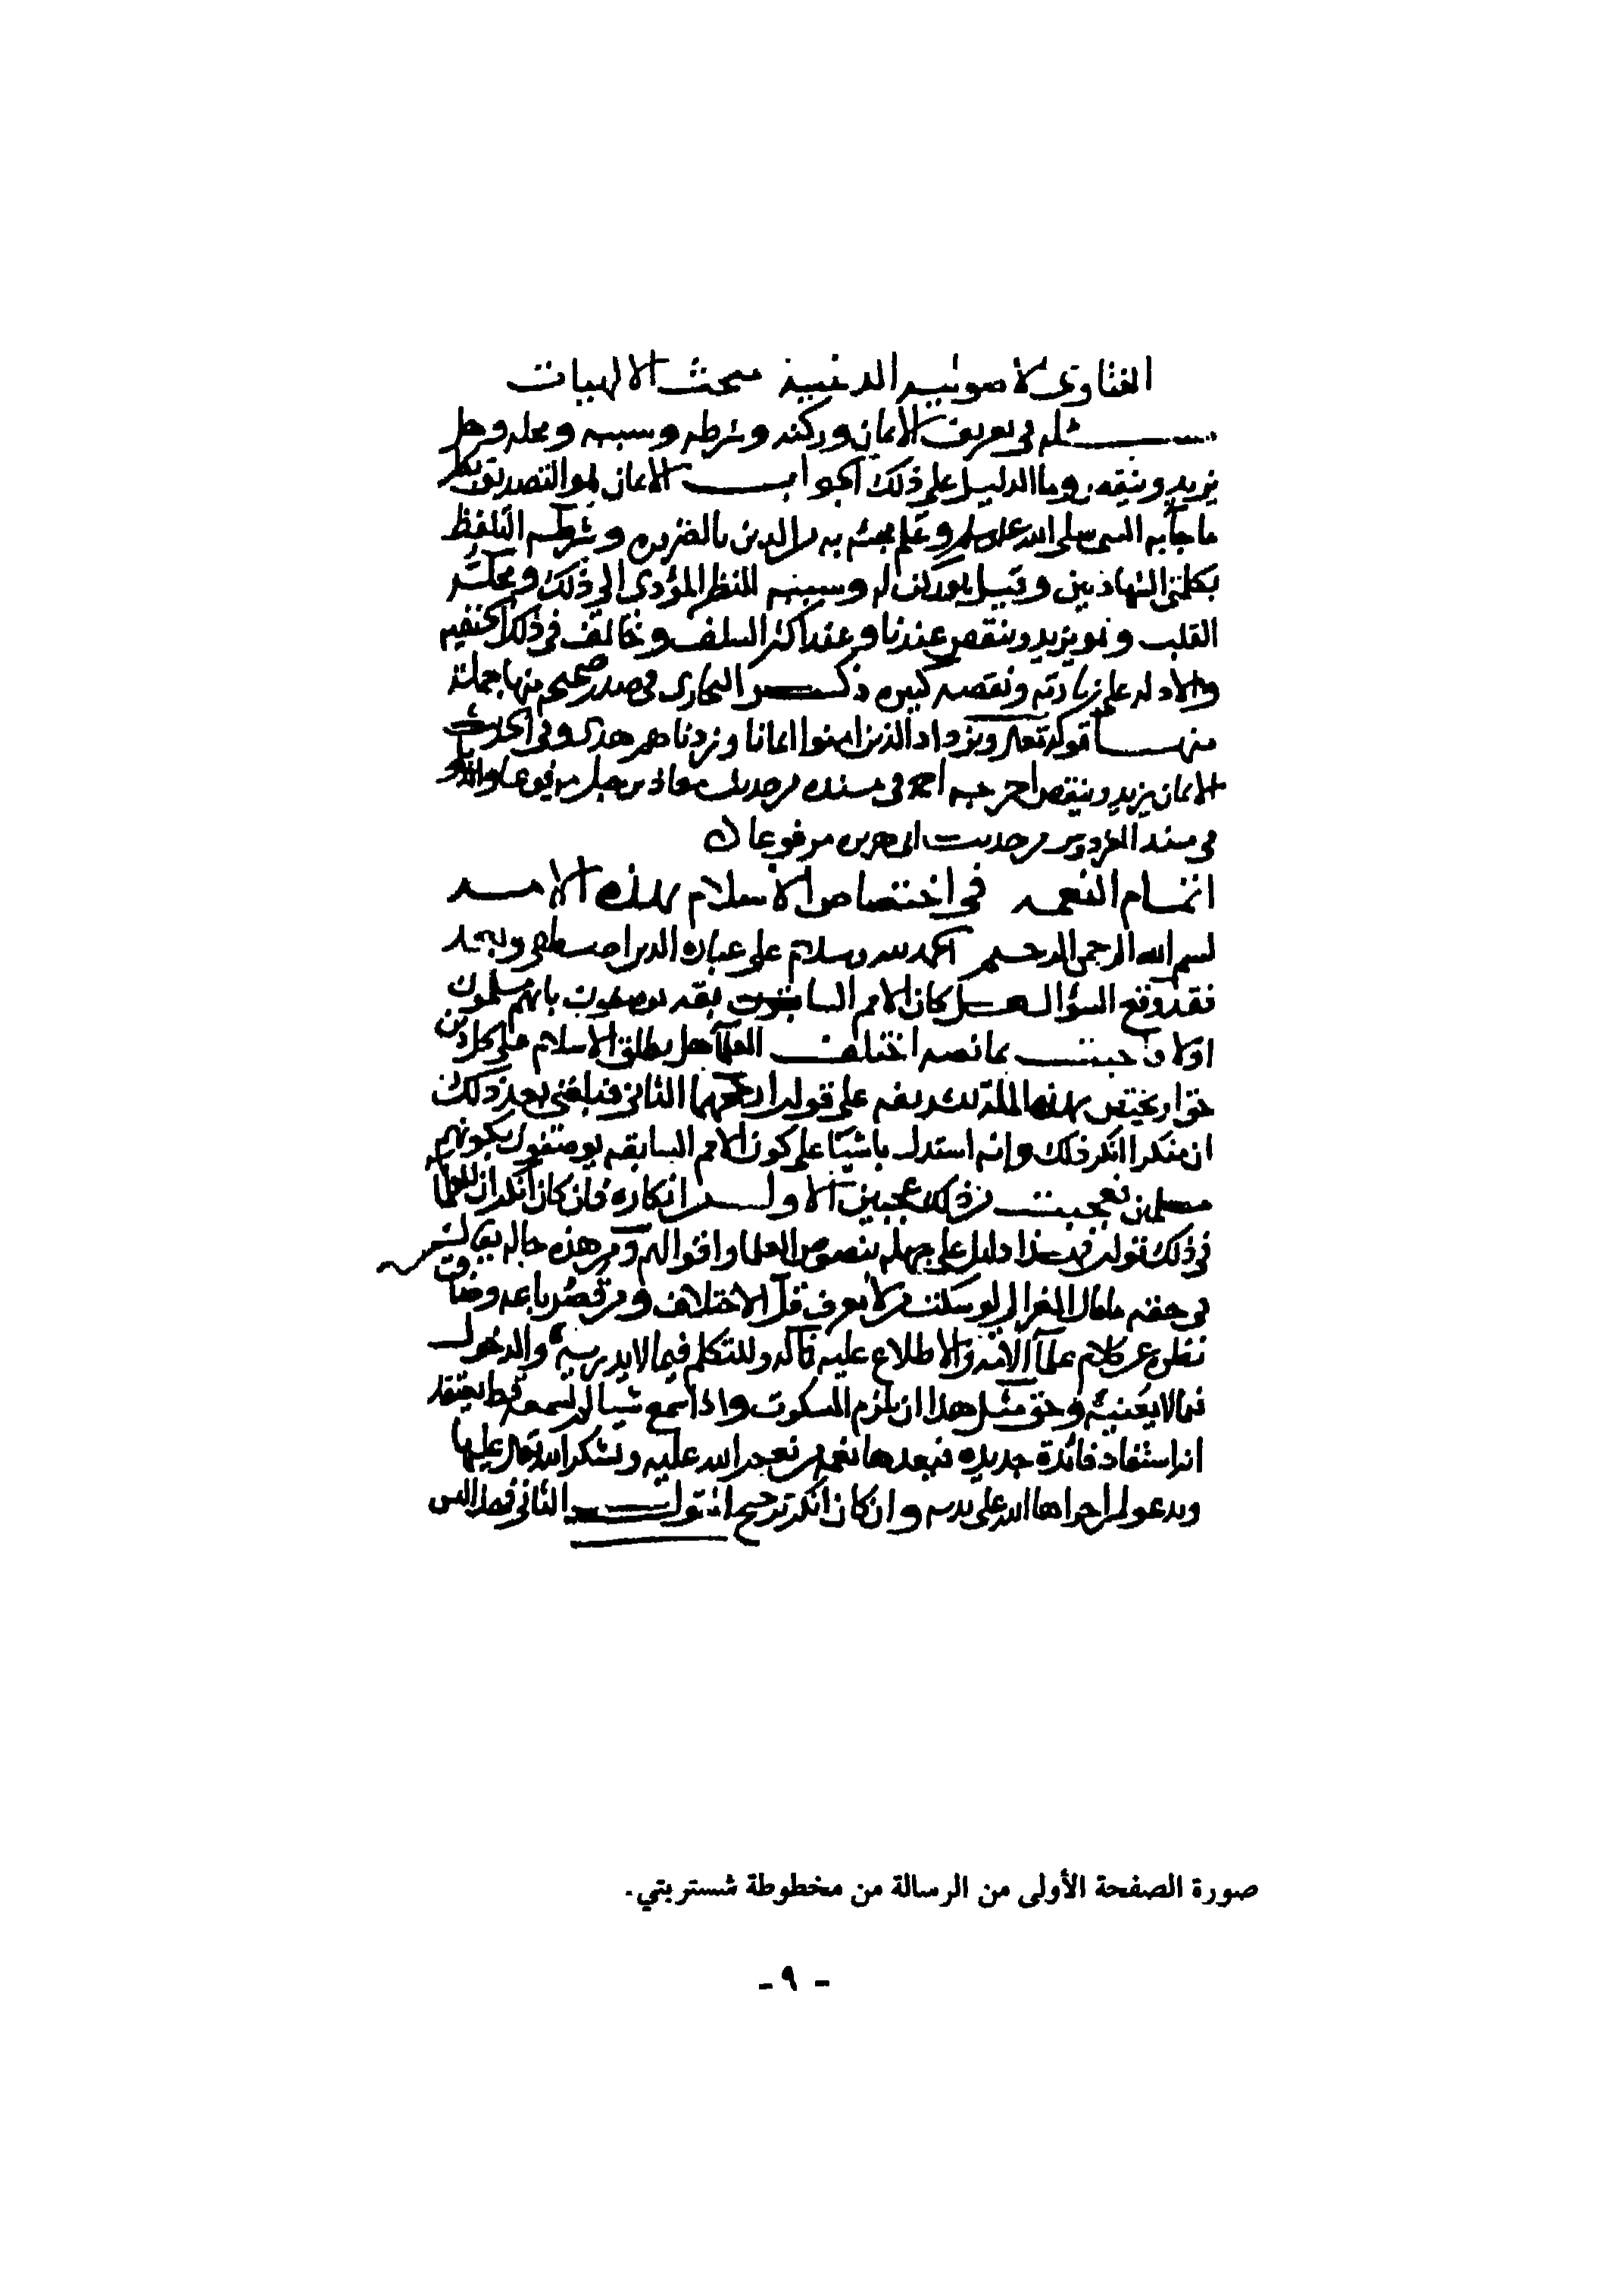 الفتاوى الاصولية الدينية مبحث الالهيات
مسئله في تعريف الايمان وركنه وشرطه وسببه ومحله وهل
يزيد وينقص وما الدليل على ذلك الجواب الايمان هو التصديق بكل
ما جآ به النبي صلى الله عليه وسلم وعلم مجيئه به من الدين بالضروره وشرطه التلفظ
بكلمتي الشهادتين وقيل هو ركن له وسببه النظر المؤدى الى ذلك ومحله
القلب وهو يزيد وينقص عندنا وعند اكثر السلف وخالف في ذلك الحنفيه
والادله على زيادته ونقصه كثيره ذكر البخارى في صدر صحيحه منها جملة
منها قوله تعالى ويزداد الذين امنوا ايمانا وزدناهم هدى وفي الحديث
الايمان يزيد وينقص اخرجه احمد في مسنده من حديث معاذ بن جبل مرفوعا والديلمي
في مسند الفردوس من حديث ابي هريره مرفوعا
اتمام النعمه في اختصاص الاسلام بهذه الامه
بسم الله الرحمن الرحيم الحمد لله وسلام على عباده الذين اصطفى وبعد
فقد وقع السؤال هل كان الامم السابقون بقه يوصفون بانهم مسلمون
اولا فاجبت بما نصه اختلف العلمآ هل يطلق الاسلام على كل دين
حق او يختص بهذه الملة الشريفه على قولين ارجحهما الثاني فبلغني بعد ذلك
ان منكرا انكر ذلك وانه استدل باشيآ على كون الامم السابقه يوصفون بكونهم
مسلمين فعجبت من ذلك عجبين الاول انكاره فان كان انكر ان للعلمآ
في ذلك قولين فهذا دليل على جهله بنصوص العلما واقوالهم ومن هذه حاله يقال
في حقه ما قال الغزالي لو سكت من لا يعرف قل الاختلاف ومن قصر باعه وضاق
نظره عن كلام علمآ الامه والاطلاع عليه فماله وللتكلم فيما لا يدريه والدخول
فيما لا يعنيه وحق مثل هذا ان يلزم السكوت واذا سمع شيا لم يسمعه قط يعتقد
انه استفاد فائدة جديده فيعدها نعمه من نعم الله عليه ويشكر الله تعالى عليها
ويدعو لمن اجراها الله على يديه وان كان انكر ترجيح القول الثاني فهذا ليس
صورة الصفحة الأولى من الرسالة من مخطوطة شستربتي.
- ٩ -